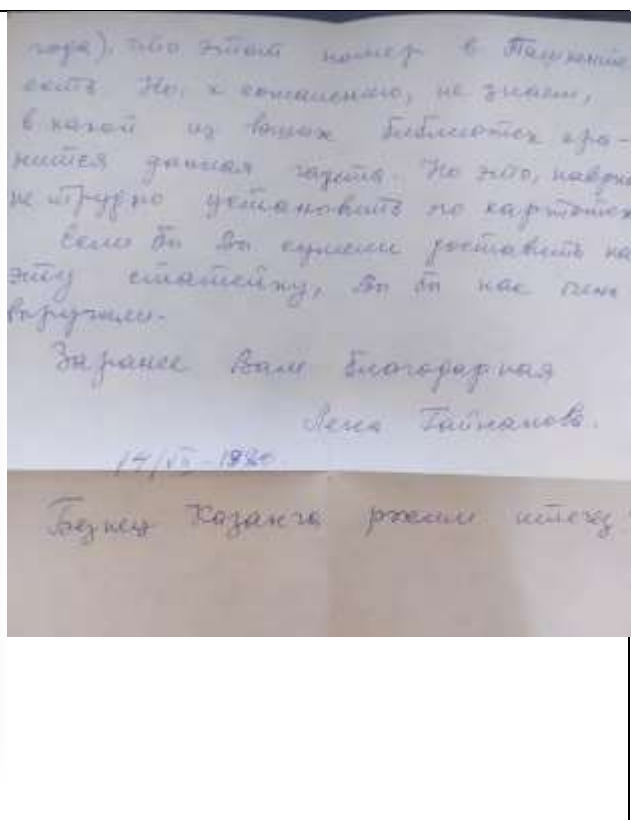 года), что этот номер в Ташкенте
есть. Но, к сожалению, не знаем,
в какой из ваших библиотек хра-
нится данная газета. Но это, наверно
не трудно установить по картотек
Если бы Вы сумели доставить на
эту статейку, Вы бы нас очень
выручили.
Заранее Вам благодарная
Лена Гайнанова.
14/VI-1980
Безнең Казанга рәхим итегез!